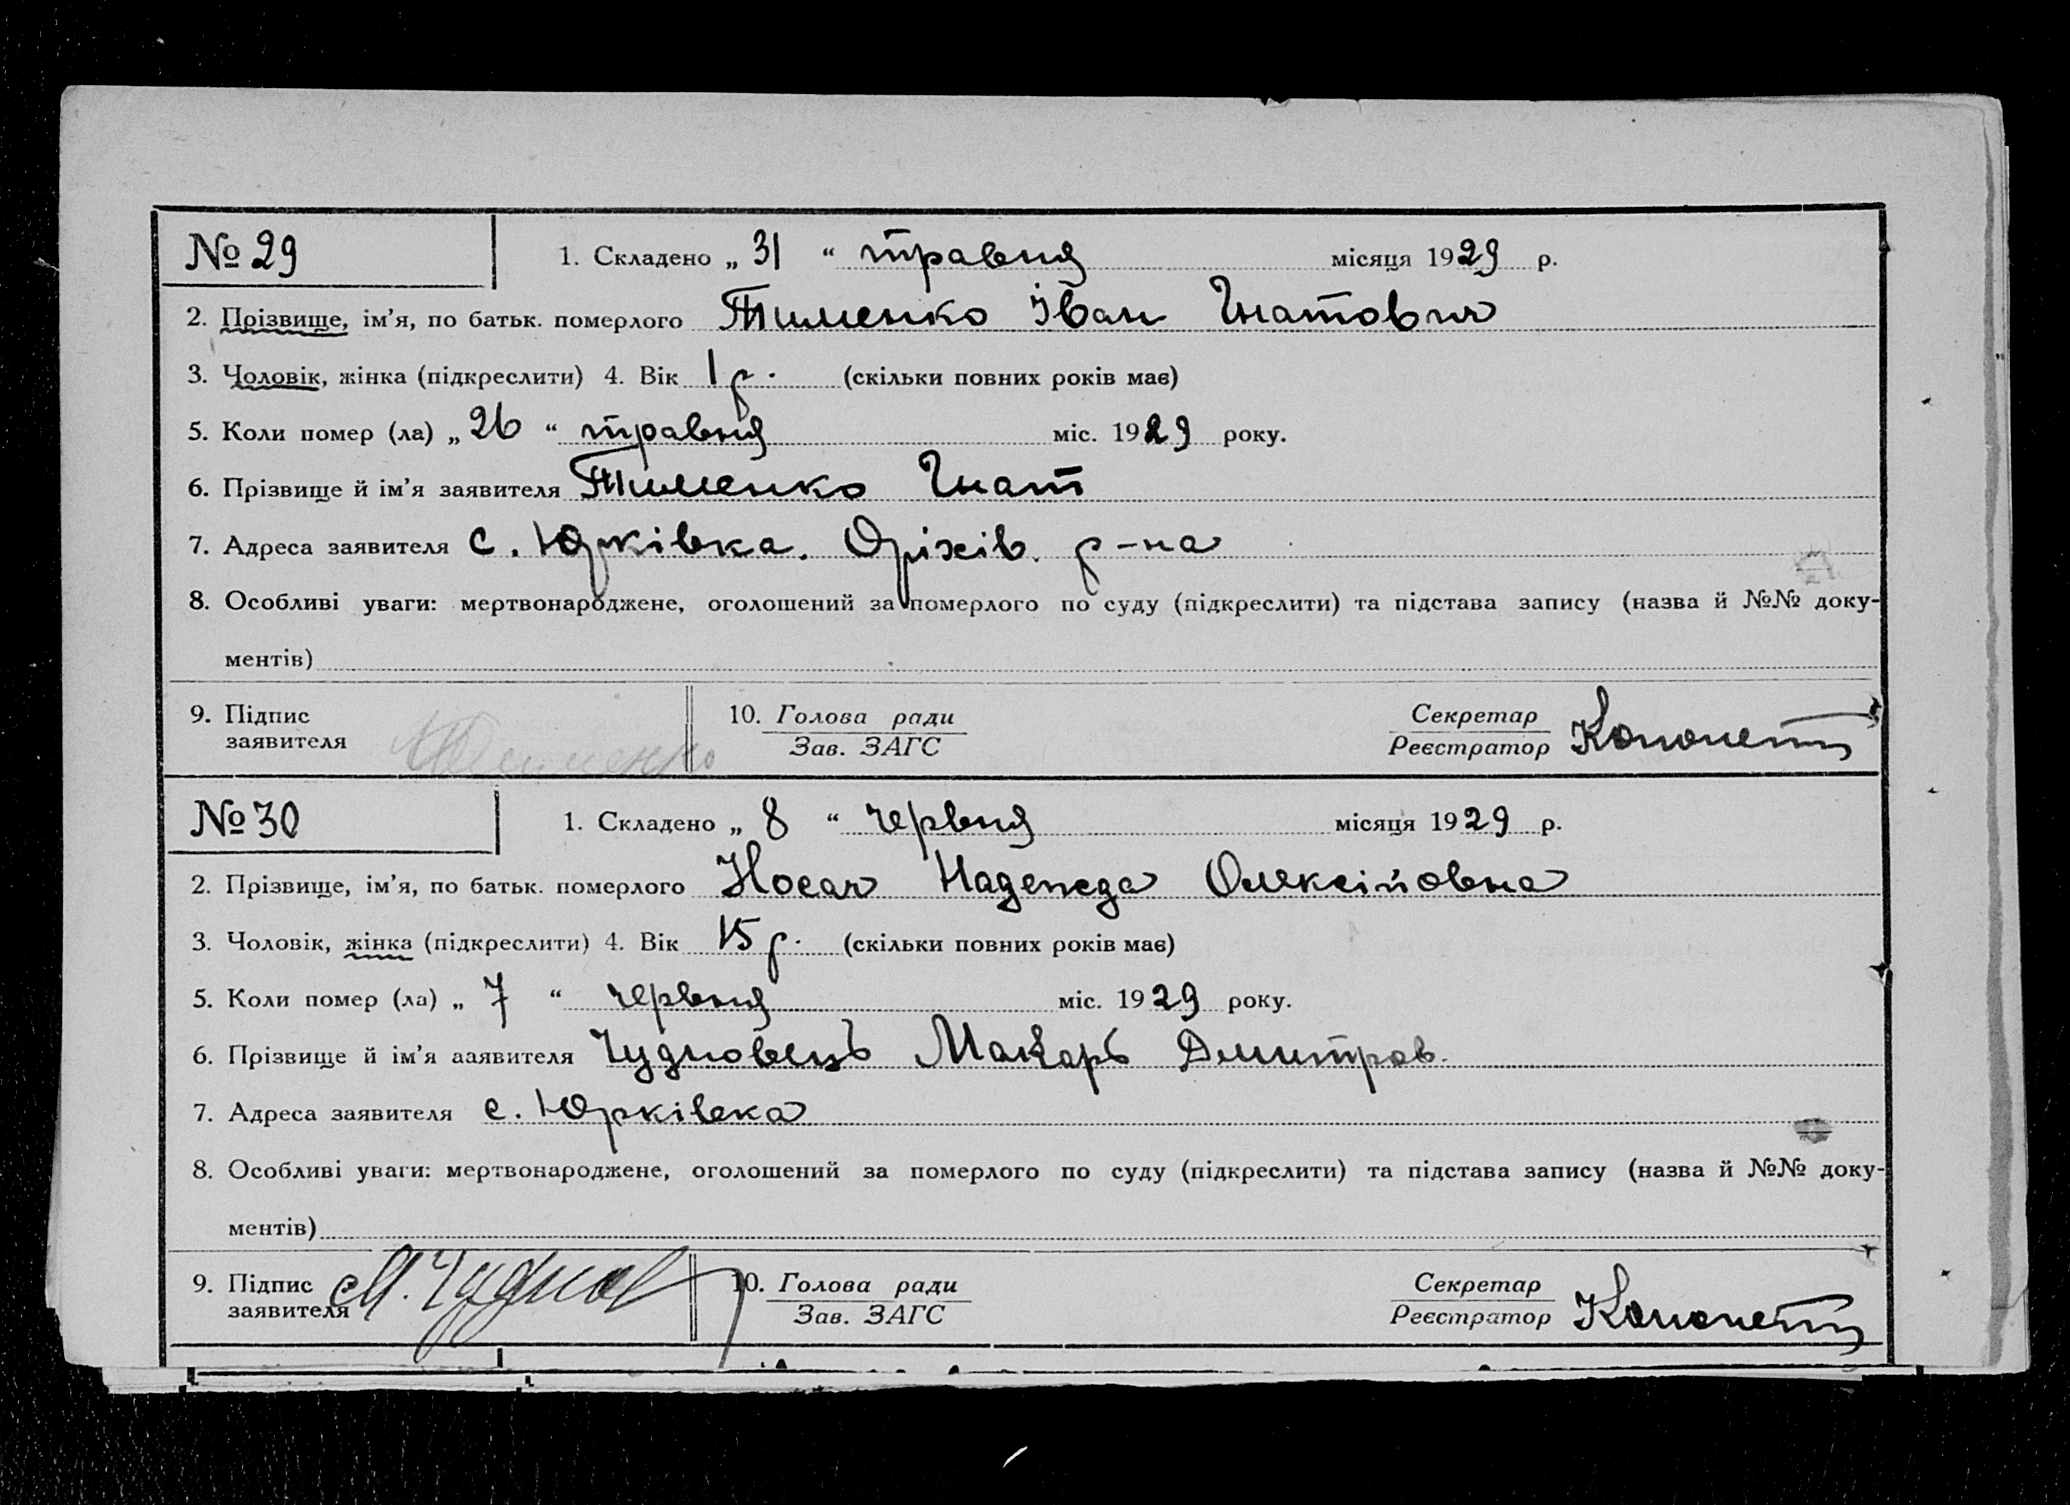 № 29 1. Складено „ 31 “ травня місяця 1929 р.
2. Прізвище, ім’я, по батьк. померлого Тименко Іван Гнатович
3. Чоловік, жінка (підкреслити) 4. Вік 1 р. (скільки повних років має)
5. Коли помер (ла) „ 26 “ травня міс. 1929 року.
6. Прізвище й ім’я заявителя Тименко Гнат
7. Адреса заявителя с. Юрківка. Оріхів. р-на
8. Особливі уваги: мертвонароджене, оголошений за померлого по суду (підкреслити) та підстава запису (назва й №№ доку-
ментів)
9. Підпис 10. Голова ради Секретар
заявителя Тименко Зав. ЗАГС Реєстратор
№ 30 1. Складено „ 8 “ червня місяця 1929 р.
2. Прізвище, ім’я, по батьк. померлого Носач Надежда Олексійовна
3. Чоловік, жінка (підкреслити) 4. Вік 15 р. (скільки повних років має)
5. Коли помер (ла) „ 7 “ червня міс. 1929 року.
6. Прізвище й ім’я ааявителя Чудновець Макарь Дмитров.
7. Адреса заявителя с. Юрківка
8. Особливі уваги: мертвонароджене, оголошений за померлого по суду (підкреслити) та підстава запису (назва й №№ доку-
ментів)
9. Підпис М. Чуднов 10. Голова ради Секретар
заявителя Зав. ЗАГС Реєстратор